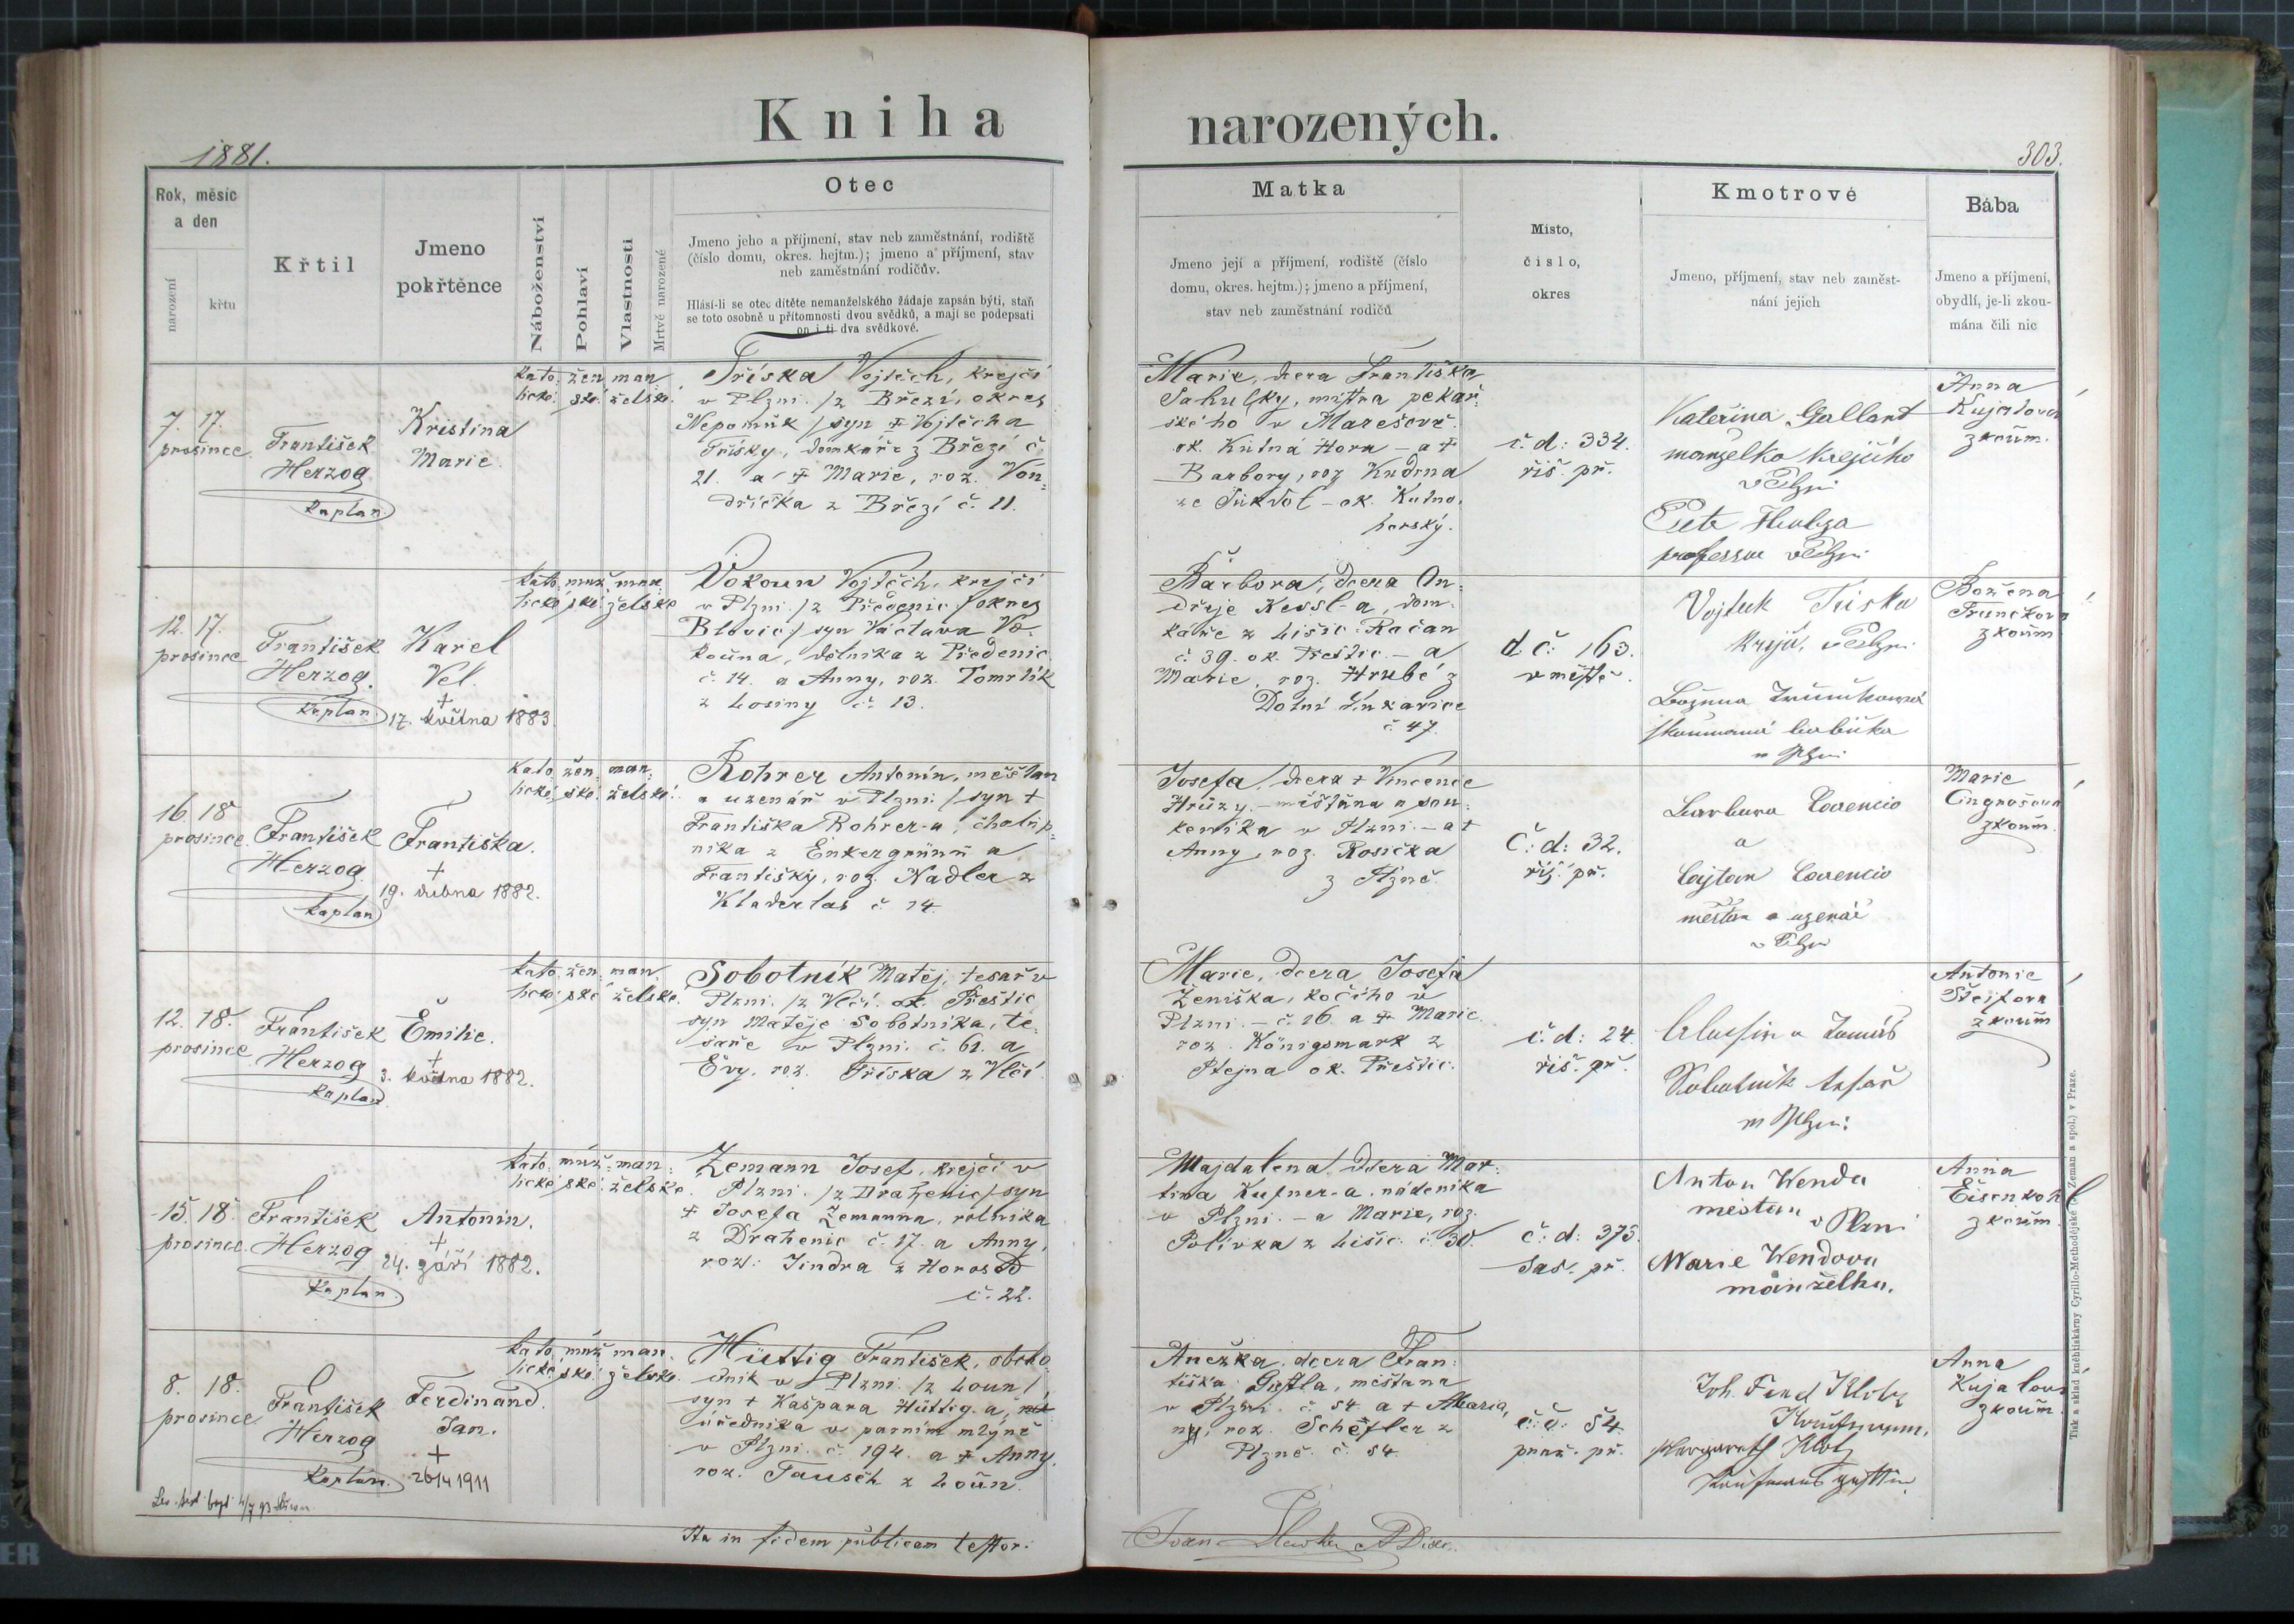 Kniha narozených.
1881.
303.
Rok, měsíc
a den
narození
křtu
Křtil
Jmeno
pokřtěnce
Náboženství
Pohlaví
Vlastnosti
Mrtvě narozené
Otec
Jmeno jeho a příjmení, stav neb zaměstnání, rodiště
(číslo domu, okres. hejtm.); jmeno a příjmení, stav
neb zaměstnání rodičův.
Hlásí-li se otec dítěte nemanželského žádaje zapsán býti, staň
se toto osobně u přítomnosti dvou svědků, a mají se podepsati
on i ti dva svědkové.
Matka
Jmeno její a příjmení, rodiště (číslo
domu, okres. hejtm.); jmeno a příjmení,
stav neb zaměstnání rodičů
Místo,
číslo,
okres
Kmotrové
Jmeno, příjmení, stav neb zaměst-
nání jejich
Bába
Jmeno a příjmení,
obydlí, je-li zkou-
mána čili nic
7. 17.
prosince
František
Herzog
kaplan
Kristina
Marie
kato: žen: man:
lické ské: želské
Tříska Vojtěch, krejčí
v Plzni /z Březí, okres
Nepomuk/ syn + Vojtěcha
Třísky, domkáře z Březí č.
21. a + Marie, roz. Von-
dřička z Březí č. 11.
Marie, dcera Františka
mistra pekař-
ského v
ok. Kutná Hora – a +
Barbory, roz. Kudrna
ze – ok. Kutno-
horský.
č. d: 334.
říš. př.
Kateřina Gallant
manželka krejčího
v Plzni
professor v Plzni
Anna
Kujalová
zkoum.
12. 17.
prosince
František
Herzog
kaplan
Karel
Vel.
+
17. května 1883
kato: muž: man:
lické ské: želské
Vokoun Vojtěch, krejčí
v Plzni /z Předenic /okres
Blovic/ syn Václava Vo-
kouna, dělníka z Předenic
č. 14. a Anny, roz. Tomrlík
z Losiny č. 13.
Barbora, dcera On-
dřeje Kessl-a, dom-
káře z Lišic: Račan
č. 39. ok. Přeštic – a
Marie, roz. Hrubé z
Dolní Lukavice
č. 47.
d. č: 163.
v městě.
Vojtěch Tříska
krejčí, v Plzni
zkoumaná babička
v Plzni
Božena
zkoum
16. 18.
prosince
František
Herzog
kaplan
Františka.
+
19. dubna 1882.
kato: žen: man:
lické ské: želské
Rohrer Antonín, měšťan
a uzenář v Plzni /syn +
Františka Rohrer-a, chalup-
níka z Enkergrünn a
Františky, roz. Nadler z
Kladerlas č. 14.
Josefa, dcera + Vincence
Hrůzy – měštana a sou-
keníka v Plzni – a +
Anny, roz. Rosička
z Plzně.
Č: d: 32.
říš. př.
Barbora Lorencio
a
Cajtan Lorencio
měšťan a uzenář
v Plzni
Marie
zkoum
12. 18.
prosince
František
Herzog
kaplan
Emilie.
+
3. května 1882.
kato: žen: man:
lické ské želské.
Sobotník Matěj, tesař v
Plzni /z Vlčí. ok. Přeštic
syn Matěje Sobotníka, te-
saře v Plzni č. 61. a
Evy, roz. Tříska z Vlčí
Marie, dcera Josefa
Ženíška, kočího v
Plzni – č. 16. a + Marie
roz. Königsmark z
Ptejna ok. Přeštic.
č. d: 24.
říš. př.
a Tomáš
Sobotník tesař
v Plzni
Antonie
zkoum
15. 18.
prosince.
František
Herzog
kaplan
Antonín.
+
24. září 1882.
kato: muž: man:
lické ské: želské.
Zemann Josef, krejčí v
Plzni. /z Draženic/ syn
+ Josefa Zemanna, rolníka
z Draženic č. 17. a Anny,
roz. Jindra z
č. 22.
Majdalena, dcera Mar-
tina Kufner-a, nádeníka
v Plzni. – a Marie, roz.
Polívka z Lišic č. 30.
č: d: 373.
sas. př.
Anton Wenda
mestan v Plzni
Marie Wendova
manželka.
Anna
zkoum
8. 18.
prosince
František
Herzog
kaplan.
Ferdinand
Jan.
+
26/4 1911
kato: muž: man:
lické ské: želské.
Hüttig František, obcho-
dník v Plzni. /z Loun/,
syn + Kašpara Hüttig-a,
úředníka v parním mlýně
v Plzni. č. 194. a + Anny,
roz. Tausch z Loun.
Anežka, dcera Fran-
tiška měštana
v Plzni. č. 54. a + Maria
ny, roz. Scheffler z
Plzně. č. 54.
č: d: 54
praž. př.
Joh. Ferd Klotz
Kaufmann.
Margareth Klotz
Kaufmanns gattin
Anna
Kujalová
zkoum.
Ita in fidem publicam testor:
Tisk a sklad kněhtiskárny Cyrillo-Methodějské (J. Zeman a spol.) v Praze.